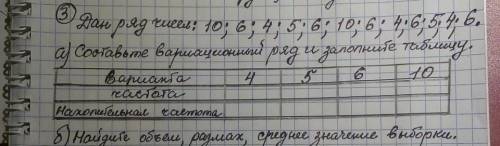 ③ Дан ряд чисел: 10; 6; 4; 5; 6; 10; 6; 4; 6; 5; 4; 6.
а) Составьте вариационный ряд и заполните таблицу.
Варианта 4 5 6 10
частота
Накопительная частота
б) Найдите объем, размах, среднее значение выборки.